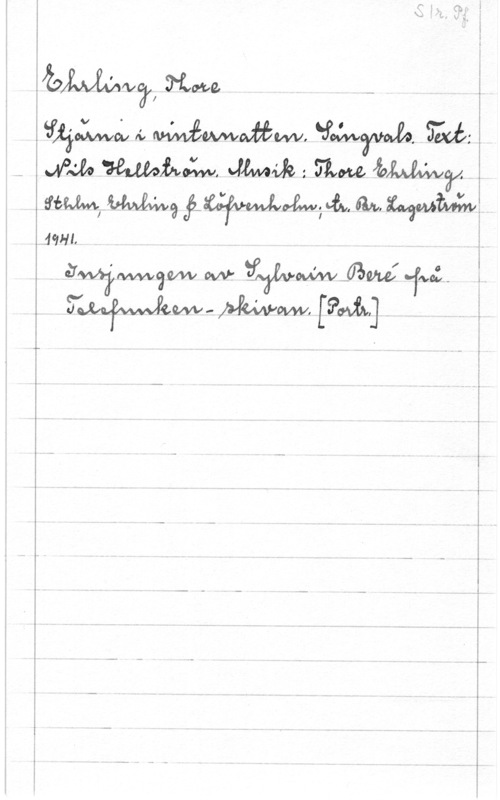 S 1 r. Pf.
Ehrling, Thore
Stjärna i vinternatten. Sångvals. Text:
Nils Hellström. Musik: Thore Ehrling.
Sthlm, Ehrling & Löfvenholm; tr. Br. Lagerström
1941.
Insjungen av Sylvain Beré på
Telefunken-skivan. [Portr.]